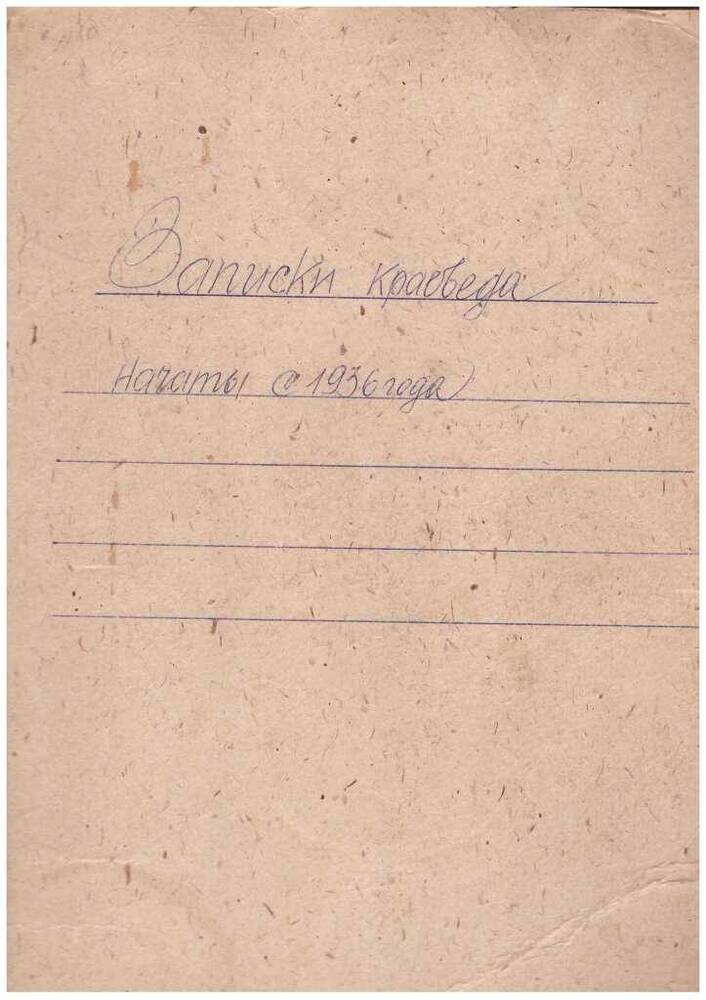 Записки краеведа
начаты с 1936 года